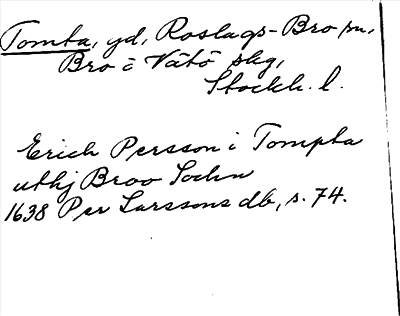 Tomta, gd, Roslags-Bro sn,
Bro o Vätö skg,
Stockh. l.
Erich Persson i Tompta
uthj Broo Sochn
1638 Per Larssons db, s. 74.